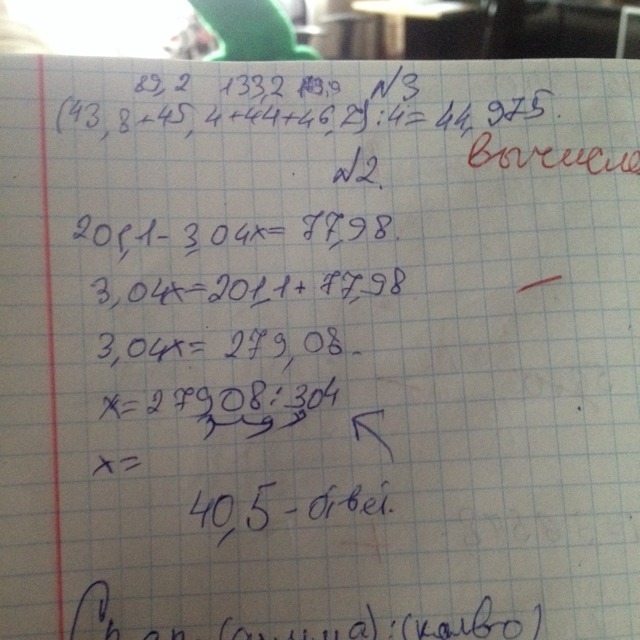 89,2 133,2 №3
(43,8+45,4+44+46,7):4=44,975.
вычисле
№2.
201,1-3,04x=77,98.
3,04x=201,1+77,98
3,04x=279,08.
x=27908:304
x=
40,5-